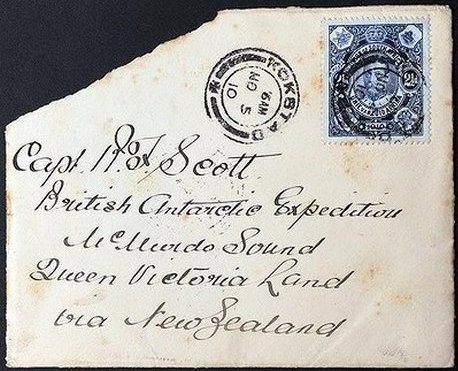 KOKSTAD
6 AM
NO 5
10
UNION OF SOUTH AFRICA
1910
Capt. R. F. Scott
British Antarctic Expedition
McMurdo Sound
Queen Victoria Land
via New Zealand